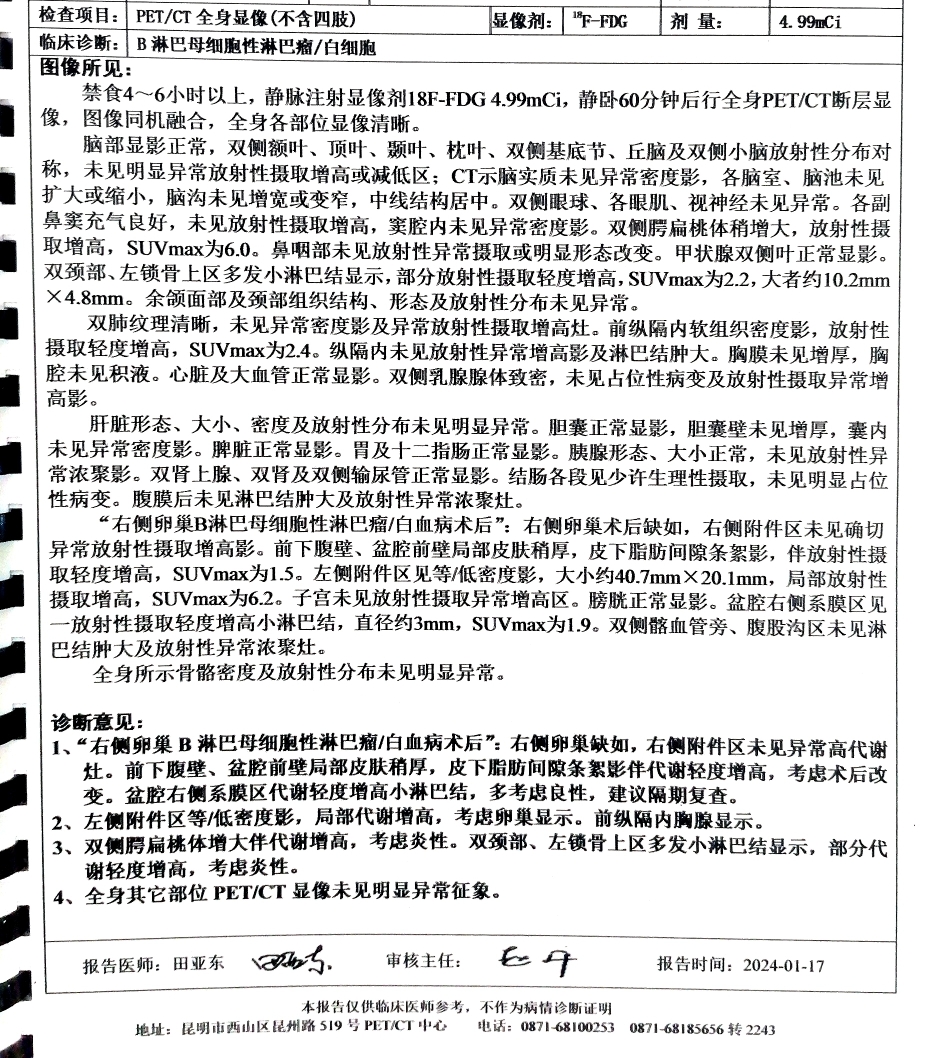 检查项目： PET/CT 全身显像(不含四肢) 显像剂： ¹⁸F-FDG 剂 量： 4.99mCi
临床诊断： B 淋巴母细胞性淋巴瘤/白细胞
图像所见：
禁食4～6小时以上，静脉注射显像剂18F-FDG 4.99mCi，静卧60分钟后行全身PET/CT断层显
像，图像同机融合，全身各部位显像清晰。
脑部显影正常，双侧额叶、顶叶、颞叶、枕叶、双侧基底节、丘脑及双侧小脑放射性分布对
称，未见明显异常放射性摄取增高或减低区；CT示脑实质未见异常密度影，各脑室、脑池未见
扩大或缩小，脑沟未见增宽或变窄，中线结构居中。双侧眼球、各眼肌、视神经未见异常。各副
鼻窦充气良好，未见放射性摄取增高，窦腔内未见异常密度影。双侧腭扁桃体稍增大，放射性摄
取增高，SUVmax为6.0。鼻咽部未见放射性异常摄取或明显形态改变。甲状腺双侧叶正常显影。
双颈部、左锁骨上区多发小淋巴结显示，部分放射性摄取轻度增高，SUVmax为2.2，大者约10.2mm
×4.8mm。余颌面部及颈部组织结构、形态及放射性分布未见异常。
双肺纹理清晰，未见异常密度影及异常放射性摄取增高灶。前纵隔内软组织密度影，放射性
摄取轻度增高，SUVmax为2.4。纵隔内未见放射性异常增高影及淋巴结肿大。胸膜未见增厚，胸
腔未见积液。心脏及大血管正常显影。双侧乳腺腺体致密，未见占位性病变及放射性摄取异常增
高影。
肝脏形态、大小、密度及放射性分布未见明显异常。胆囊正常显影，胆囊壁未见增厚，囊内
未见异常密度影。脾脏正常显影。胃及十二指肠正常显影。胰腺形态、大小正常，未见放射性异
常浓聚影。双肾上腺、双肾及双侧输尿管正常显影。结肠各段见少许生理性摄取，未见明显占位
性病变。腹膜后未见淋巴结肿大及放射性异常浓聚灶。
“右侧卵巢B淋巴母细胞性淋巴瘤/白血病术后”：右侧卵巢术后缺如，右侧附件区未见确切
异常放射性摄取增高影。前下腹壁、盆腔前壁局部皮肤稍厚，皮下脂肪间隙条絮影，伴放射性摄
取轻度增高，SUVmax为1.5。左侧附件区见等/低密度影，大小约40.7mm×20.1mm，局部放射性
摄取增高，SUVmax为6.2。子宫未见放射性摄取异常增高区。膀胱正常显影。盆腔右侧系膜区见
一放射性摄取轻度增高小淋巴结，直径约3mm，SUVmax为1.9。双侧髂血管旁、腹股沟区未见淋
巴结肿大及放射性异常浓聚灶。
全身所示骨骼密度及放射性分布未见明显异常。
诊断意见：
1、“右侧卵巢 B 淋巴母细胞性淋巴瘤/白血病术后”：右侧卵巢缺如，右侧附件区未见异常高代谢
灶。前下腹壁、盆腔前壁局部皮肤稍厚，皮下脂肪间隙条絮影伴代谢轻度增高，考虑术后改
变。盆腔右侧系膜区代谢轻度增高小淋巴结，多考虑良性，建议隔期复查。
2、左侧附件区等/低密度影，局部代谢增高，考虑卵巢显示。前纵隔内胸腺显示。
3、双侧腭扁桃体增大伴代谢增高，考虑炎性。双颈部、左锁骨上区多发小淋巴结显示，部分代
谢轻度增高，考虑炎性。
4、全身其它部位 PET/CT 显像未见明显异常征象。
报告医师：田亚东 田亚东 审核主任： 报告时间：2024-01-17
本报告仅供临床医师参考，不作为病情诊断证明
地址：昆明市西山区昆州路 519 号 PET/CT 中心 电话：0871-68100253 0871-68185656 转 2243